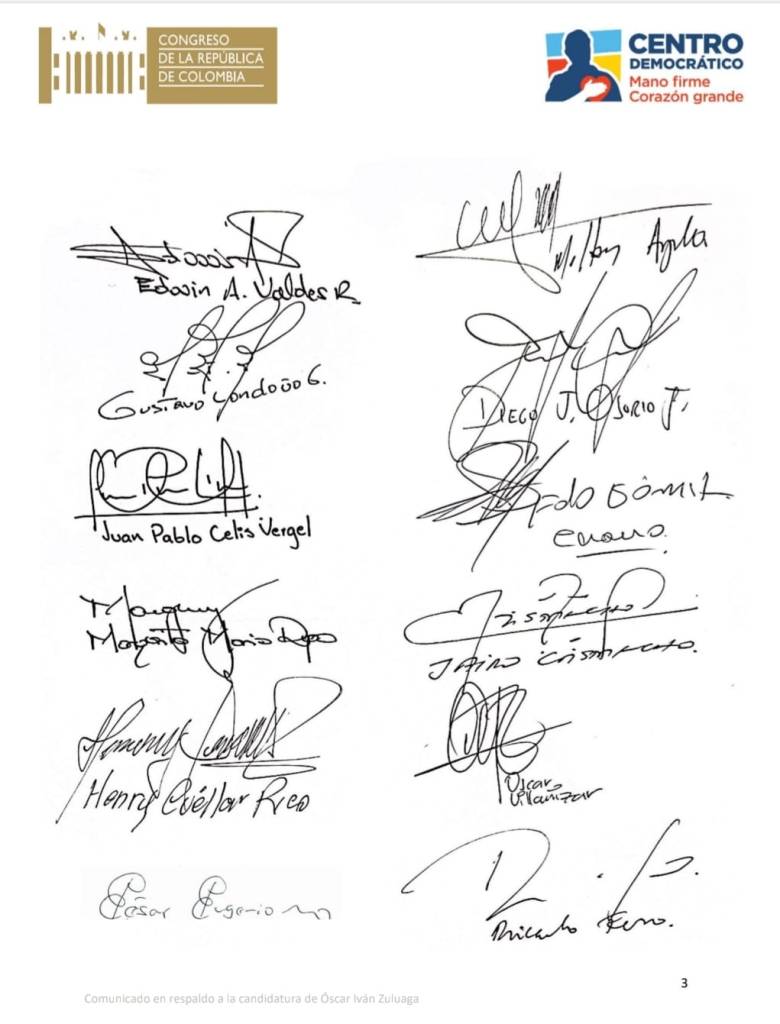 CONGRESO
DE LA REPÚBLICA
DE COLOMBIA
CENTRO
DEMOCRÁTICO
Mano firme
Corazón grande
Edwin A. Valdes R.
Gustavo Londoño G.
Juan Pablo Celis Vergel
Margarita María
Henry Cuéllar Rico
César Eugenio
Milton
DIEGO J. OSORIO J.
JAIRO
Oscar
Villamizar
Ricardo
3
Comunicado en respaldo a la candidatura de Óscar Iván Zuluaga